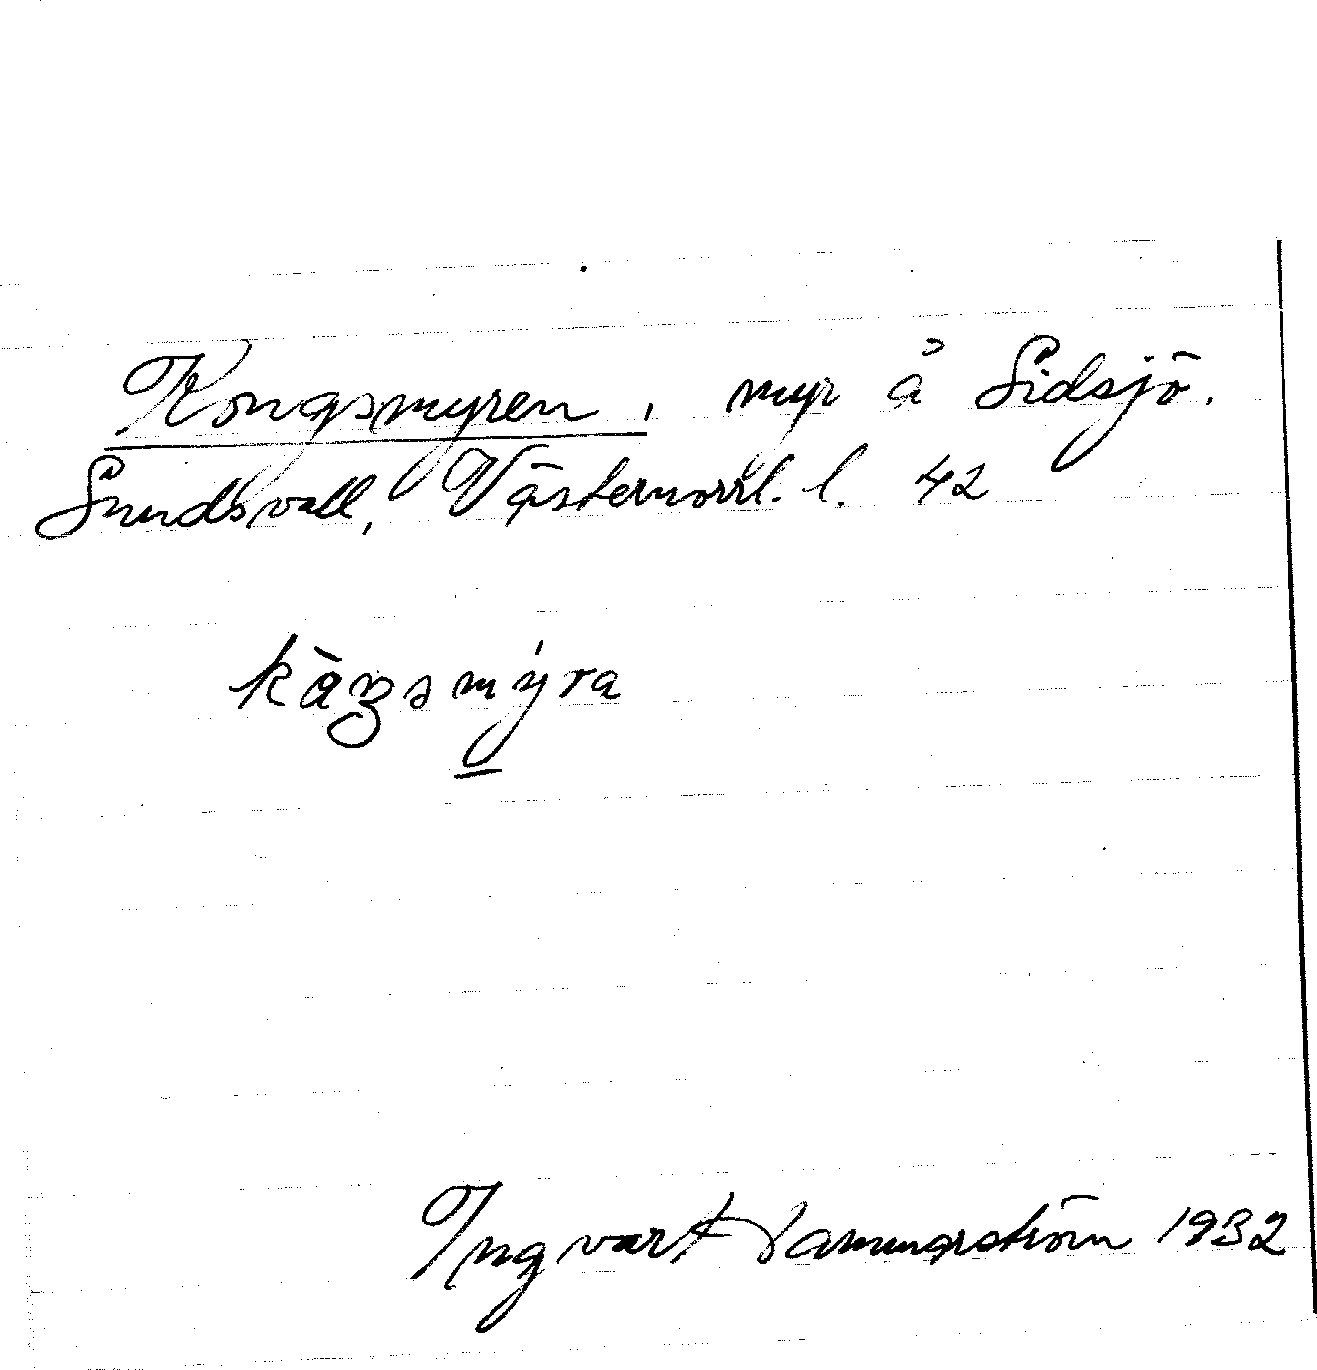 Kongsmyren, myr å Sidsjö.
Sundsvall, Västernorrl. l. 42
kàŋsmýra
Ingvart 1932